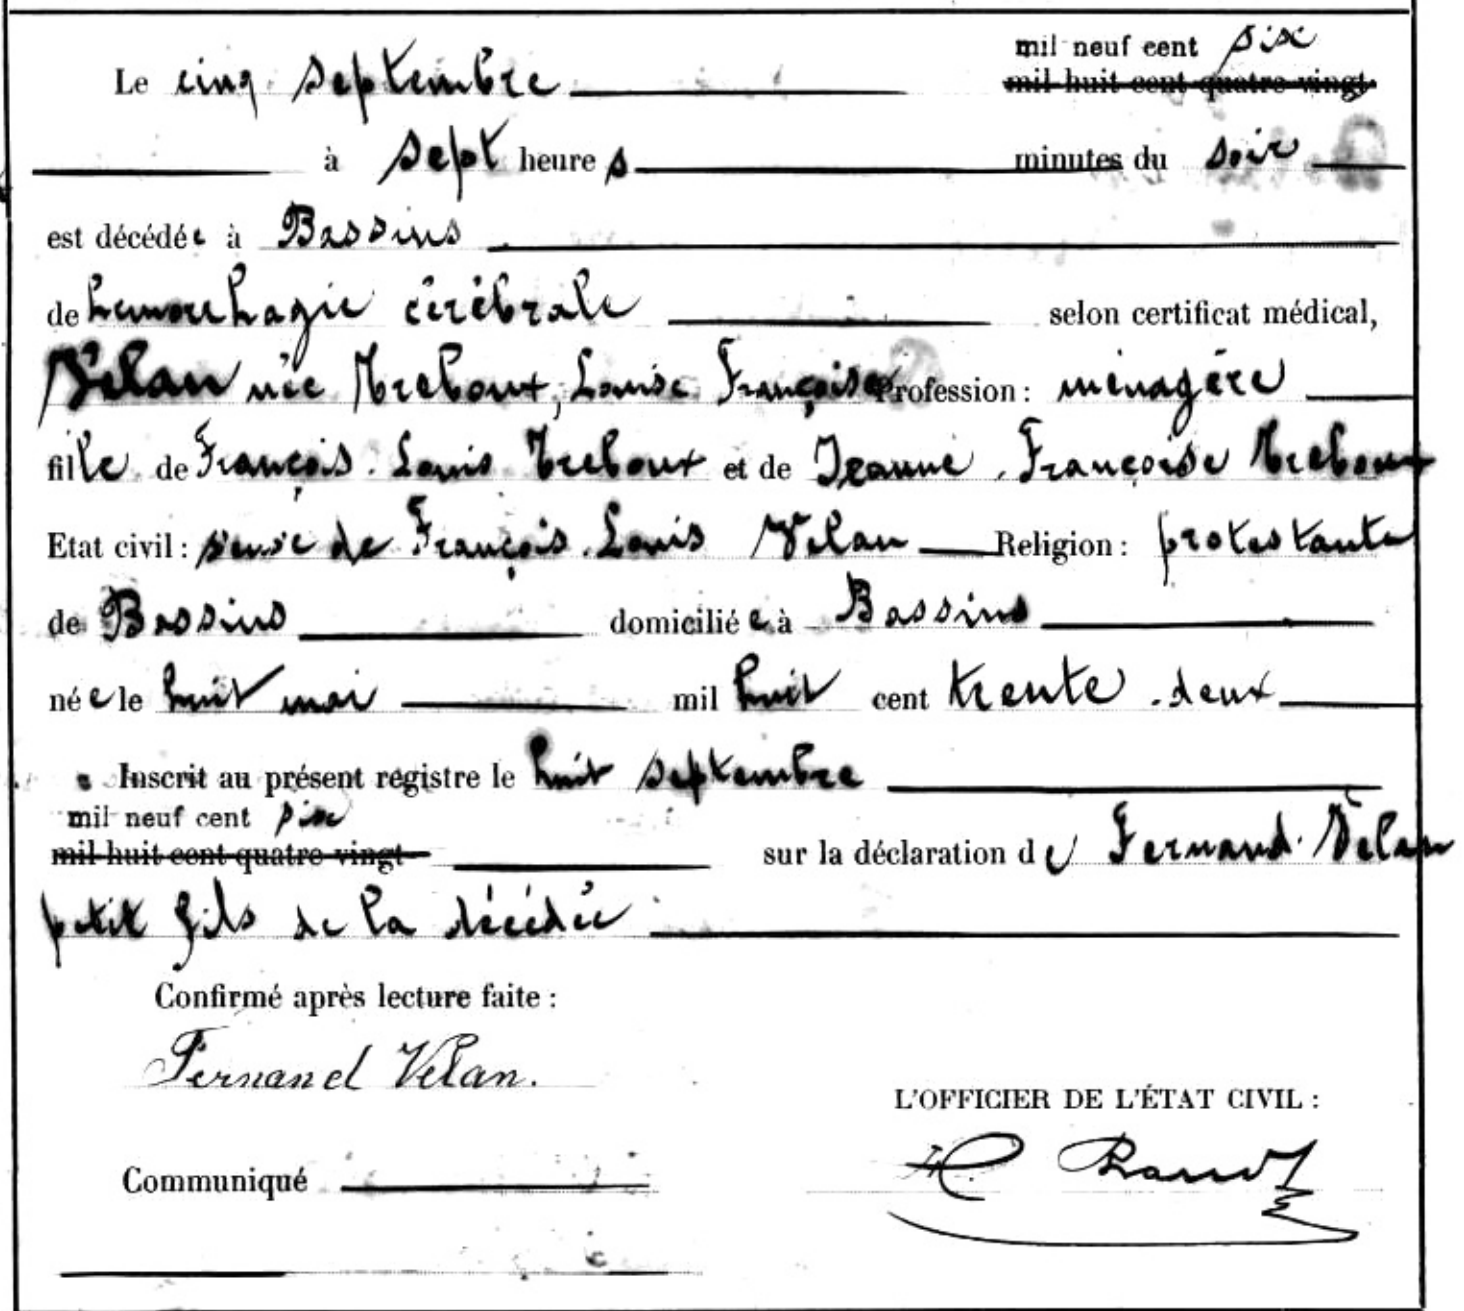 Le cinq septembre mil neuf cent six
mil huit cent quatre-vingt
à sept heures minutes du soir
est décédée à Bassins
de hemorrhagie cérébrale selon certificat médical,
Vélan née Treboux, Louise Françoise Profession : ménagère
fille de François Louis Treboux et de Jeanne Françoise Treboux
Etat civil : veuve de François Louis Vélan Religion : protestante
de Bassins domiciliée à Bassins
née le huit mai mil huit cent trente-deux
Inscrit au présent registre le huit septembre
mil neuf cent six
mil huit cent quatre-vingt sur la déclaration de Fernand Vélan
petit fils de la décédée
Confirmé après lecture faite :
Fernand Vélan.
L'OFFICIER DE L'ÉTAT CIVIL :
Communiqué